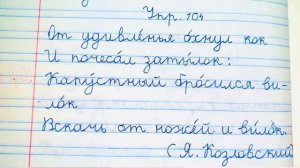 Упр. 104
От удивле́нья о́хнул кок
И почеса́л заты́лок:
Капу́стный бро́сился ви-
ло́к
Вскачь от ноже́й и ви́лок.
(Я. Козловский)